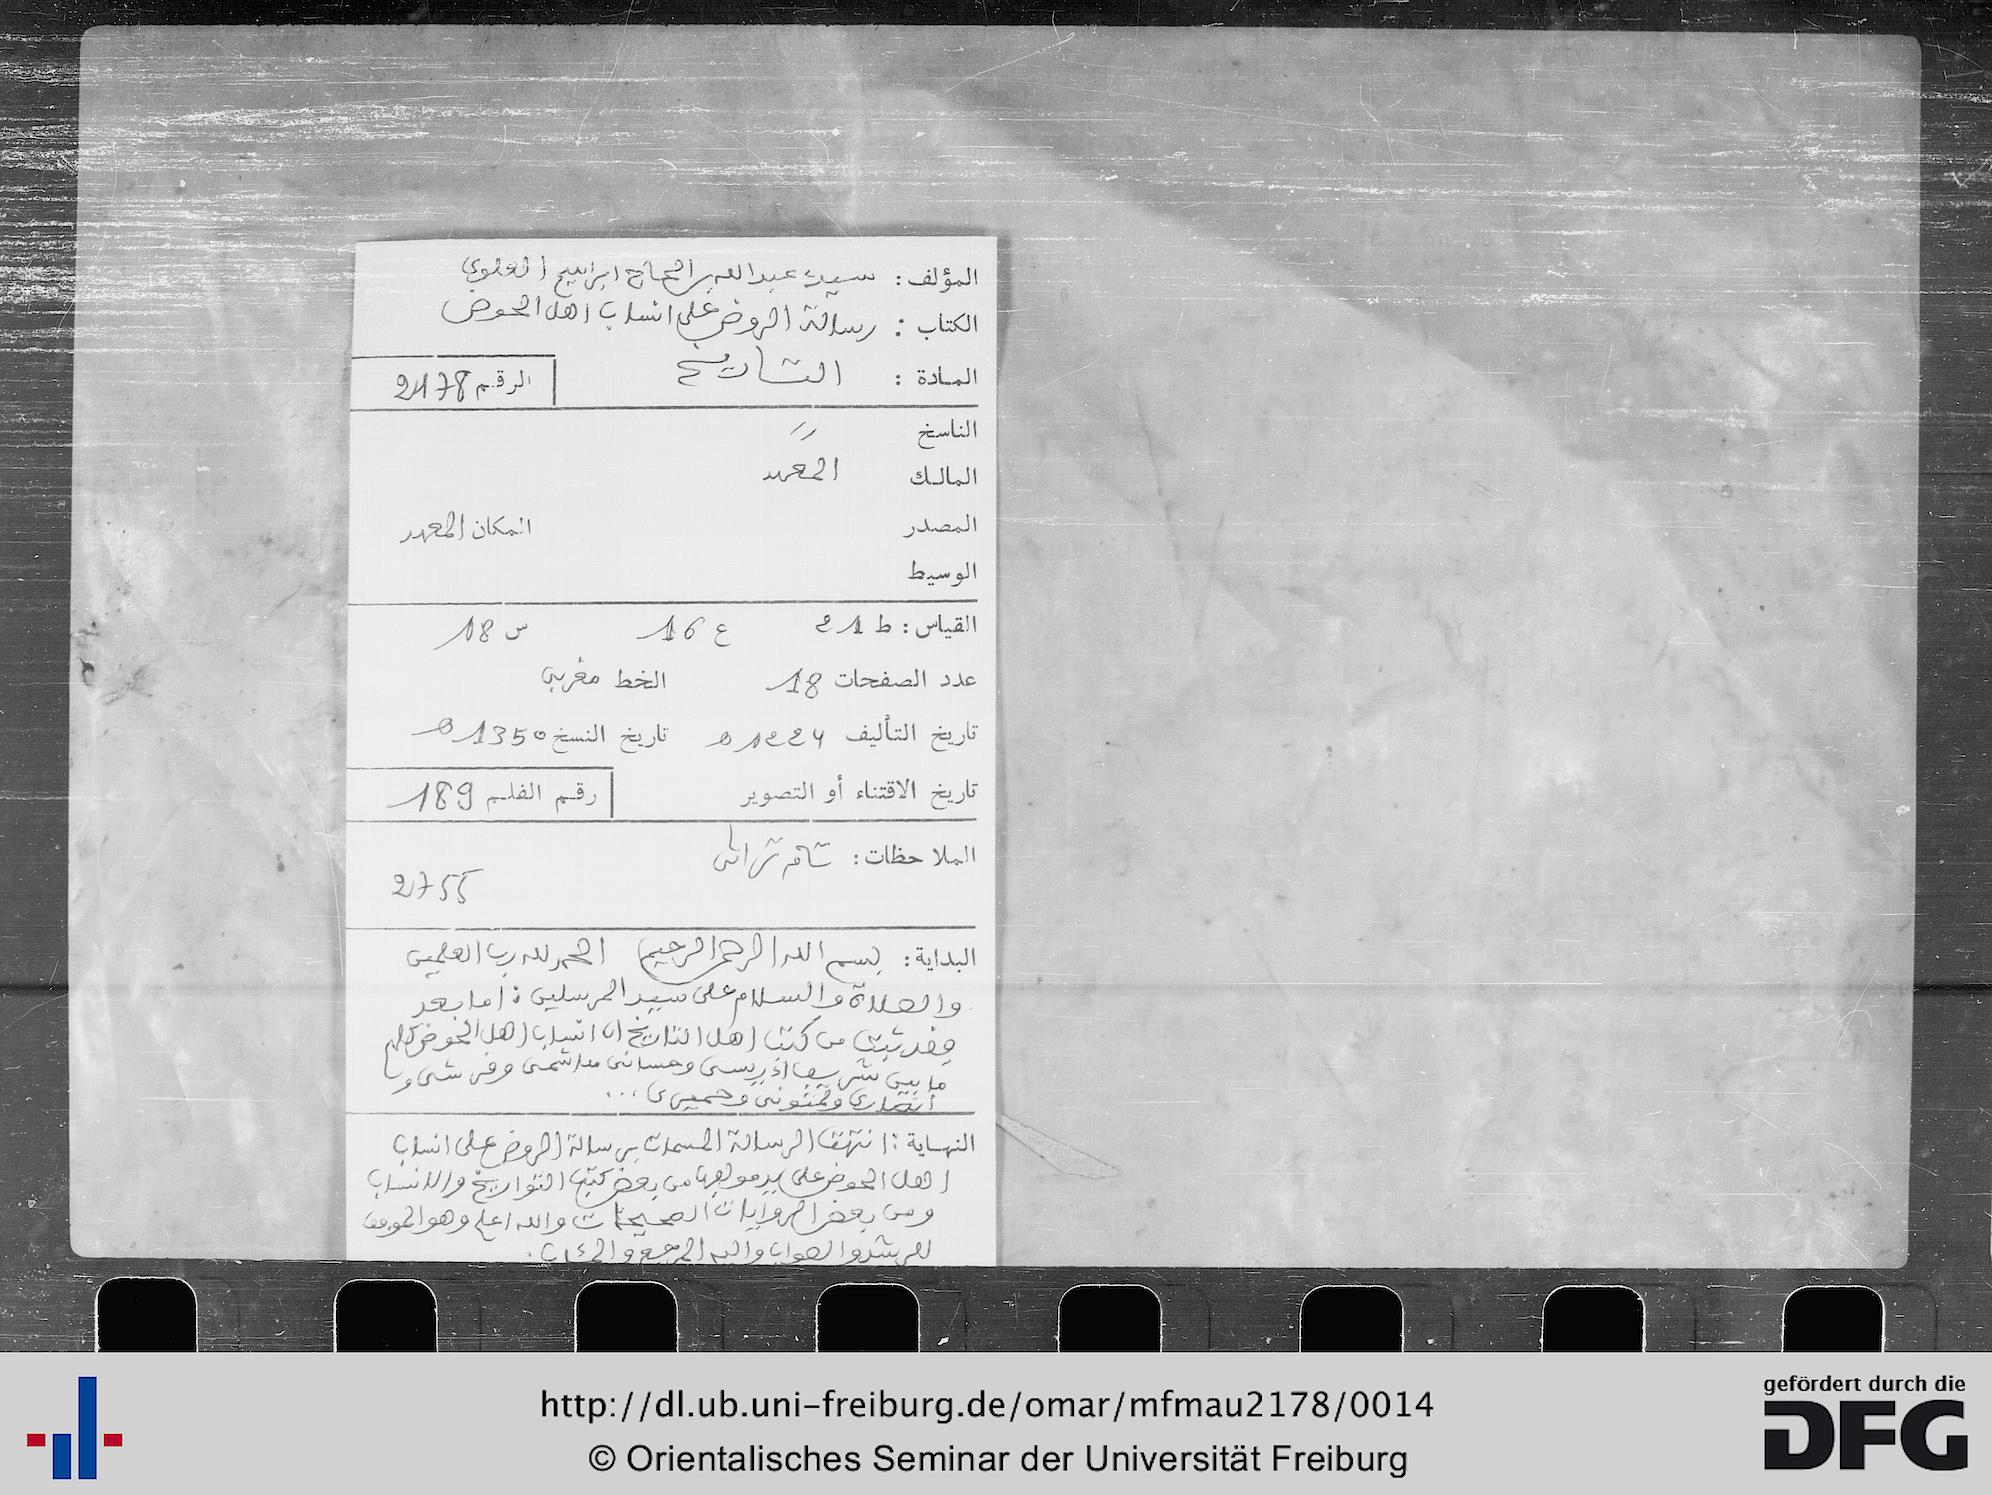 المؤلف : سيدي عبد الله بن الحاج ابراهيم العلوي
الكتاب : رسالة الروض على انساب اهل الحوض
المادة : التاريخ
الرقم 2178
الناسخ //
المالك المعهد
المصدر المكان المعهد
الوسيط
القياس : ط 21 ع 16 س 18
عدد الصفحات 18 الخط مغربي
تاريخ التأليف 1224 ه تاريخ النسخ 1350 ه
تاريخ الاقتناء أو التصوير رقم الفلم 189
الملاحظات :
2755
البداية : بسم الله الرحمن الرحيم الحمد لله رب العلمين
والصلاة والسلام على سيد المرسلين : اما بعد
فقد ثبت من كتب اهل التاريخ ان انساب اهل الحوض كلهم
ما بين شريف ادريسي وحساني هاشمي وقرشي و
أنصاري ولمتوني وحميري ...
النهاية : انتهت الرسالة المسمات برسالة الروض على انساب
اهل الحوض على يد مولفها من بعض كتب التواريخ والانساب
ومن بعض الروايات الصحيحات والله اعلم وهو الموفق
والصواب واليه المرجع والمئاب .
http://dl.ub.uni-freiburg.de/omar/mfmau2178/0014
© Orientalisches Seminar der Universität Freiburg
gefördert durch die
DFG